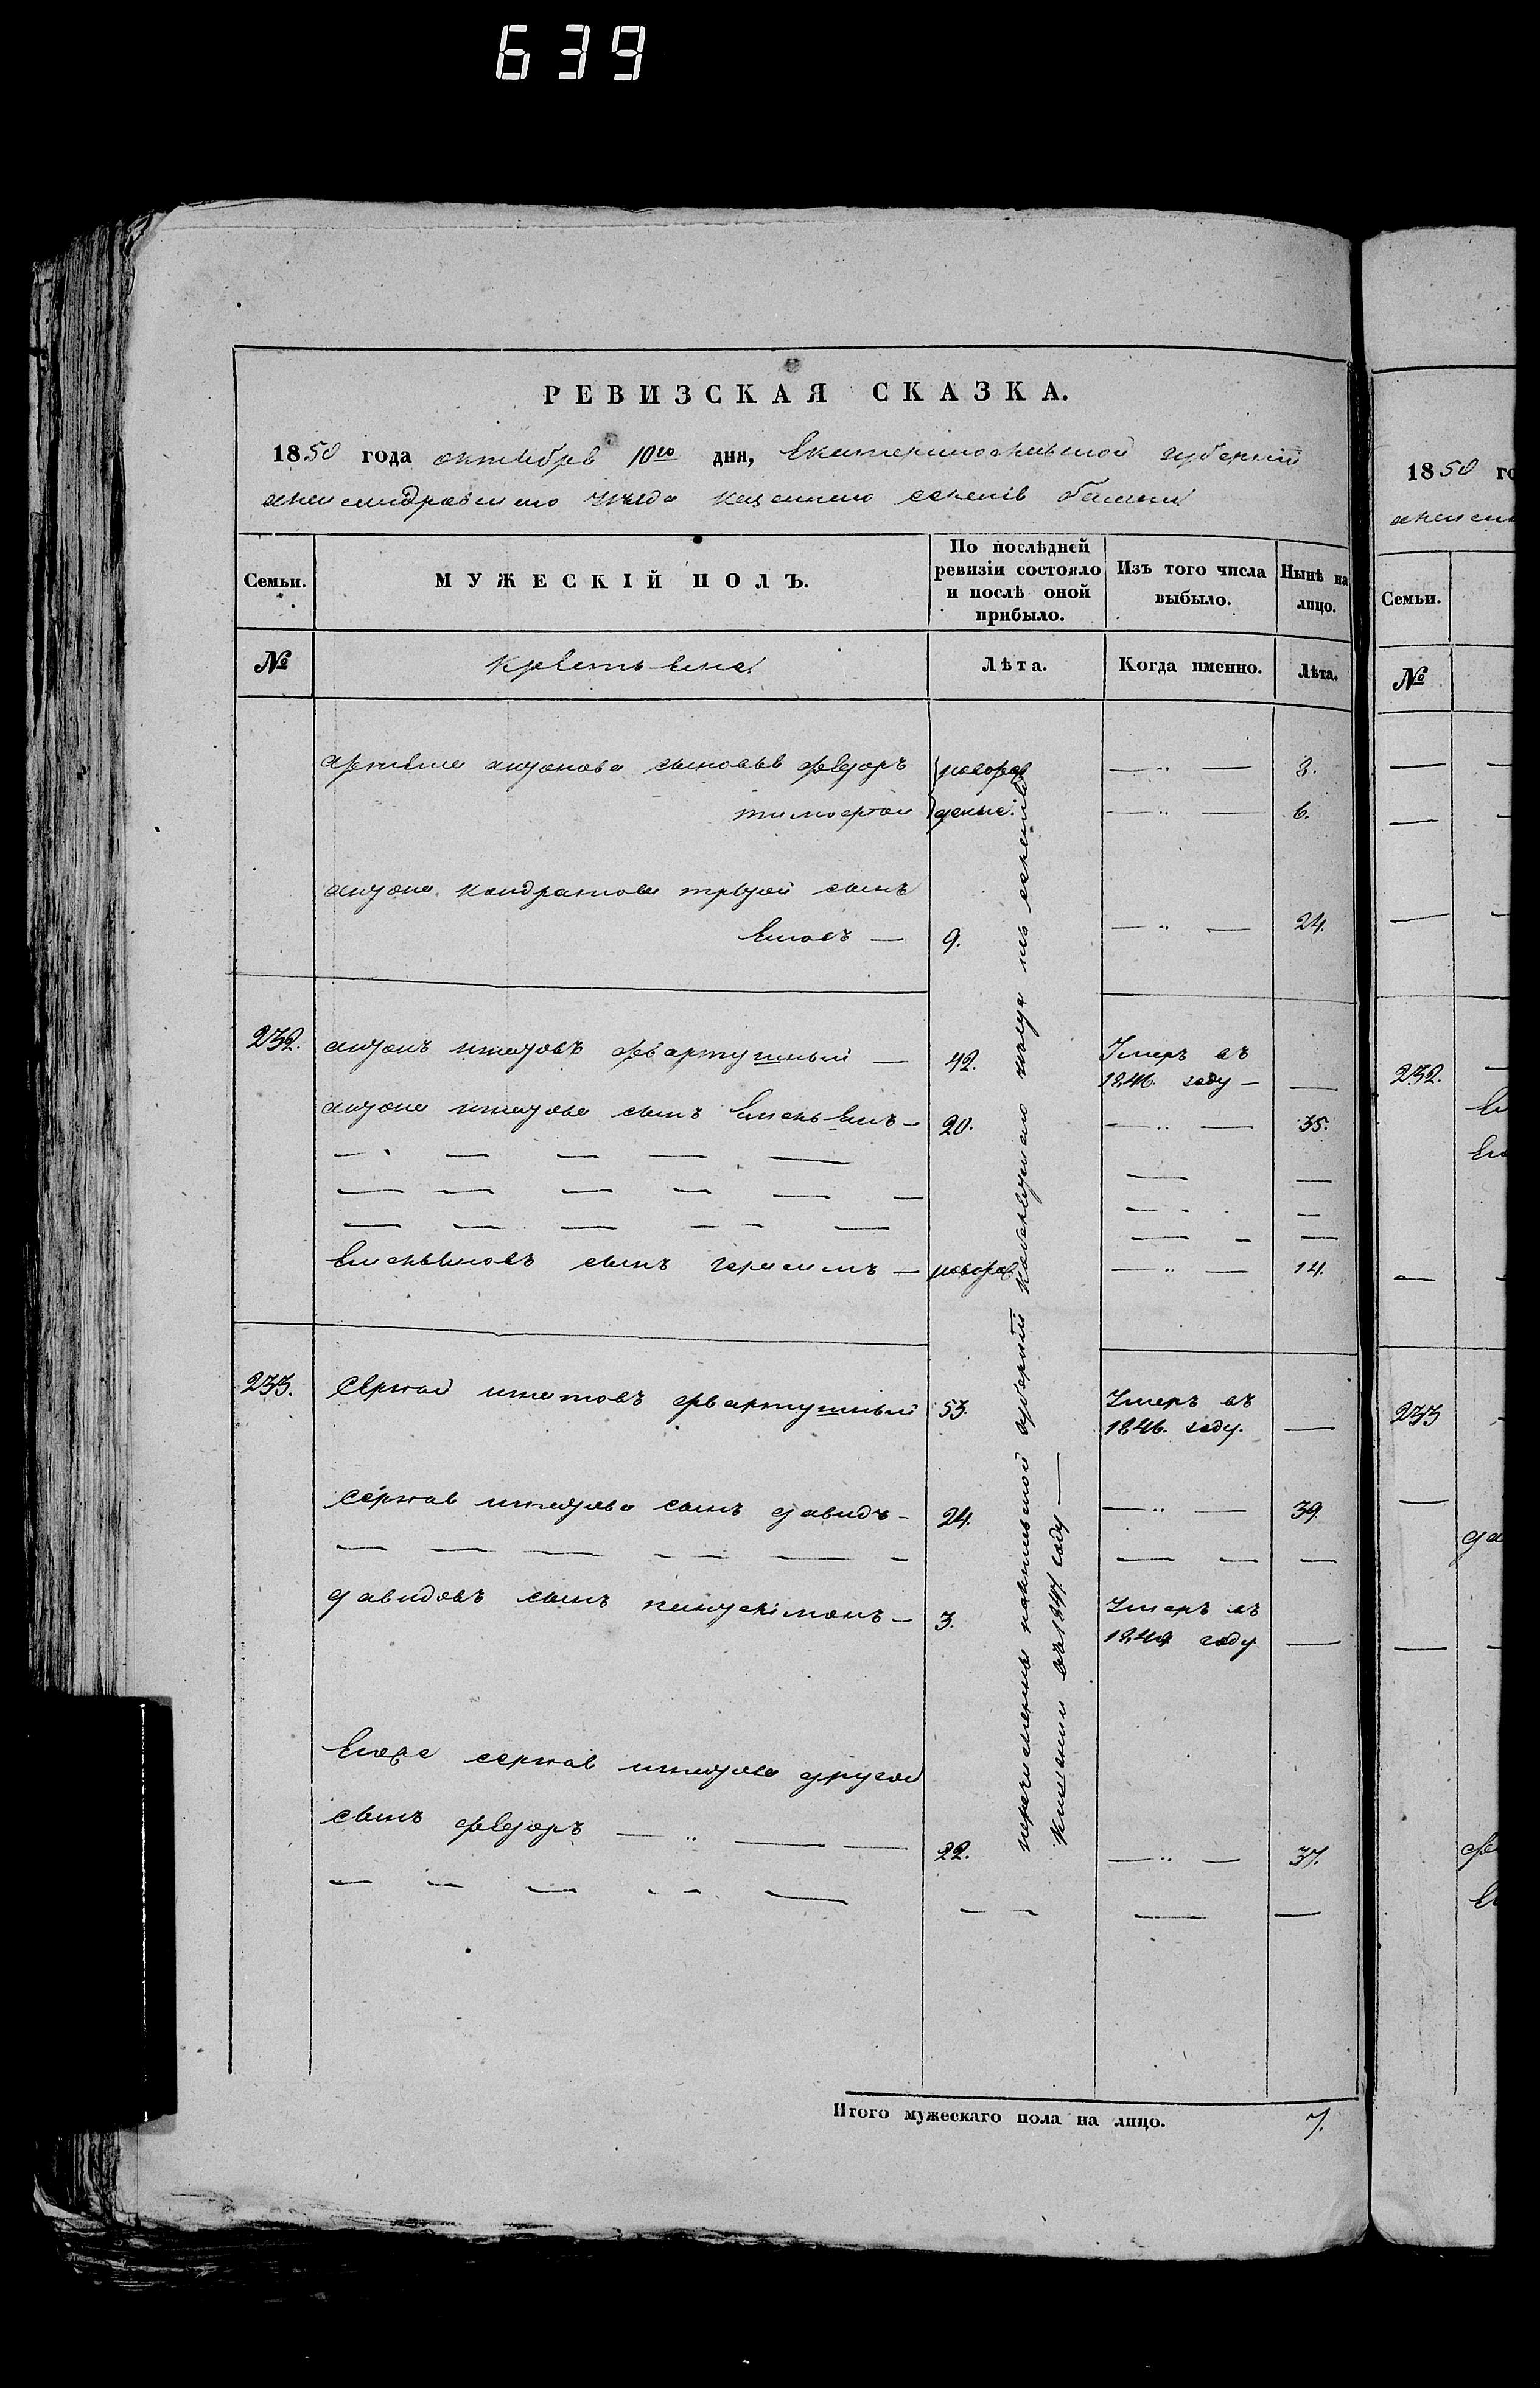 639
РЕВИЗСКАЯ СКАЗКА.
1850 года октября 10го дня, Екатеринославской губерніи
александровскаго уѣзда казеннаго селенія
Семьи.
МУЖЕСКІЙ ПОЛЪ.
По послѣдней ревизіи состояло и послѣ оной прибыло.
Изъ того числа выбыло.
Нынѣ на лицо.
№
Лѣта.
Когда именно.
Лѣта.
антонова сыновья федоръ новорож 8.
тимофей деные. 6.
антона кондратова третій сынъ
9. 24.
232. антонъ игнатовъ фвартушный — 42. Умеръ въ
1846. году —
антона игнатова сынъ Емельянъ — 20. 35.
Емельяновъ сынъ герасимъ — новорож 14.
233. Сергей игнатовъ фвартушный 53. Умеръ въ
1846. году.
Сергея игнатова сынъ давидъ — 24. 39.
давидовъ сынъ пантелимонъ — 3. Умеръ въ
году
сергея игнатова другой
сынъ федоръ — 22. 37.
перечислены полтавской губерніи уѣзда изъ селенія
въ 1847 году —
Итого мужескаго пола на лицо. 7.
1850 го
Семьи.
№
232.
233
да